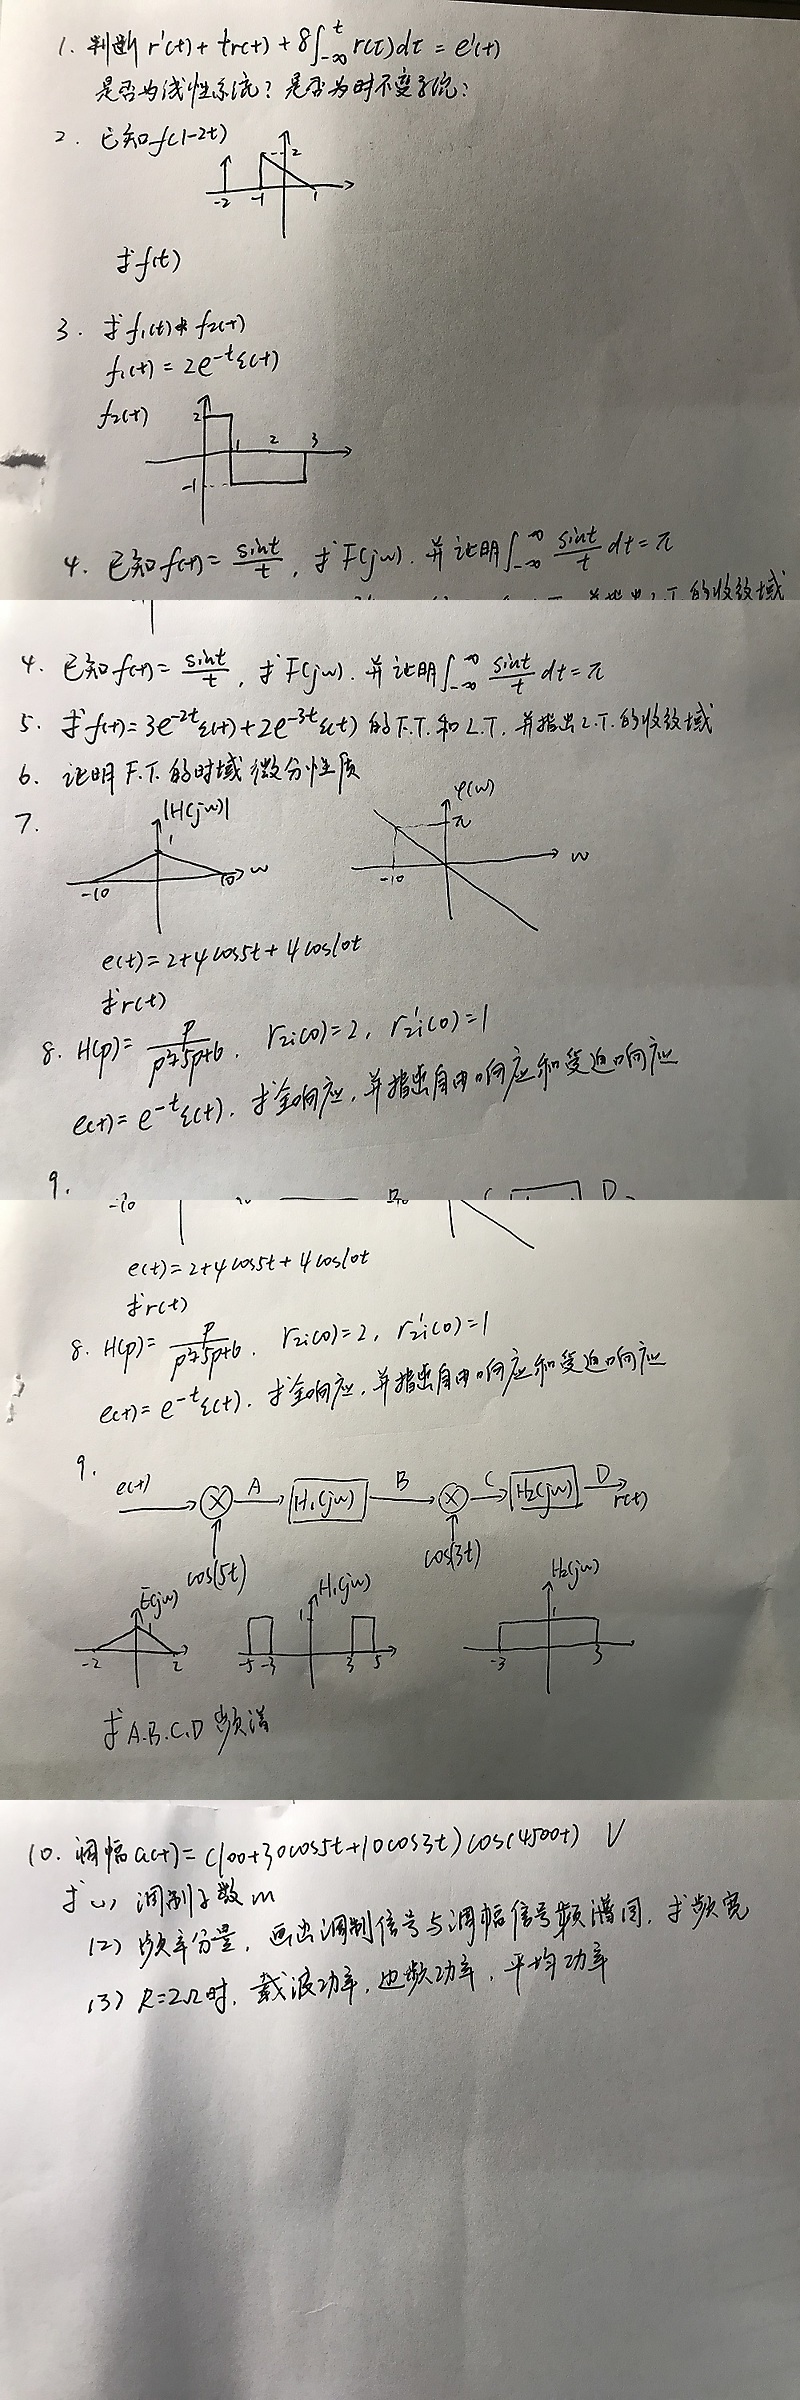 1. 判断 r'(t) + tr(t) + 8∫_{-∞}^{t} r(τ)dτ = e'(t)
是否为线性系统? 是否为时不变系统?
2. 已知f(1-2t)
2
-2 -1 1
求f(t)
3. 求f₁(t) * f₂(t)
f₁(t) = 2e^{-t}ε(t)
f₂(t)
2 1 2 3
-1
4. 已知f(t) = sint/t, 求F(jω). 并证明∫_{-∞}^{∞} sint/t dt = π
并指出L.T.的收敛域
4. 已知f(t) = sint/t, 求F(jω). 并证明∫_{-∞}^{∞} sint/t dt = π
5. 求f(t) = 3e^{-2t}ε(t) + 2e^{-3t}ε(t) 的F.T.和L.T. 并指出L.T.的收敛域
6. 证明F.T.的时域微分性质
7. |H(jω)| φ(ω)
1 π
-10 10 ω -10 ω
e(t) = 2+4cos5t + 4cos10t
求r(t)
8. H(p) = p/(p²+5p+6). r_{zi}(0)=2, r'_{zi}(0)=1
e(t) = e^{-t}ε(t). 求全响应, 并指出自由响应和受迫响应
9.
e(t) = 2+4cos5t + 4cos10t
求r(t)
8. H(p) = p/(p²+5p+6). r_{zi}(0)=2, r'_{zi}(0)=1
e(t) = e^{-t}ε(t). 求全响应, 并指出自由响应和受迫响应
9. e(t) A H₁(jω) B C H₂(jω) D r(t)
cos(5t) cos(3t)
E(jω) H₁(jω) H₂(jω)
1 1 1
-2 2 -5 -3 3 5 -3 3
求A.B.C.D频谱
10. 调幅a(t) = (100+30cos5t+10cos3t)cos(4500t) V
求(1) 调制系数m
(2) 频率分量, 画出调制信号与调幅信号频谱图, 求频宽
(3) R=2Ω时, 载波功率, 边频功率, 平均功率